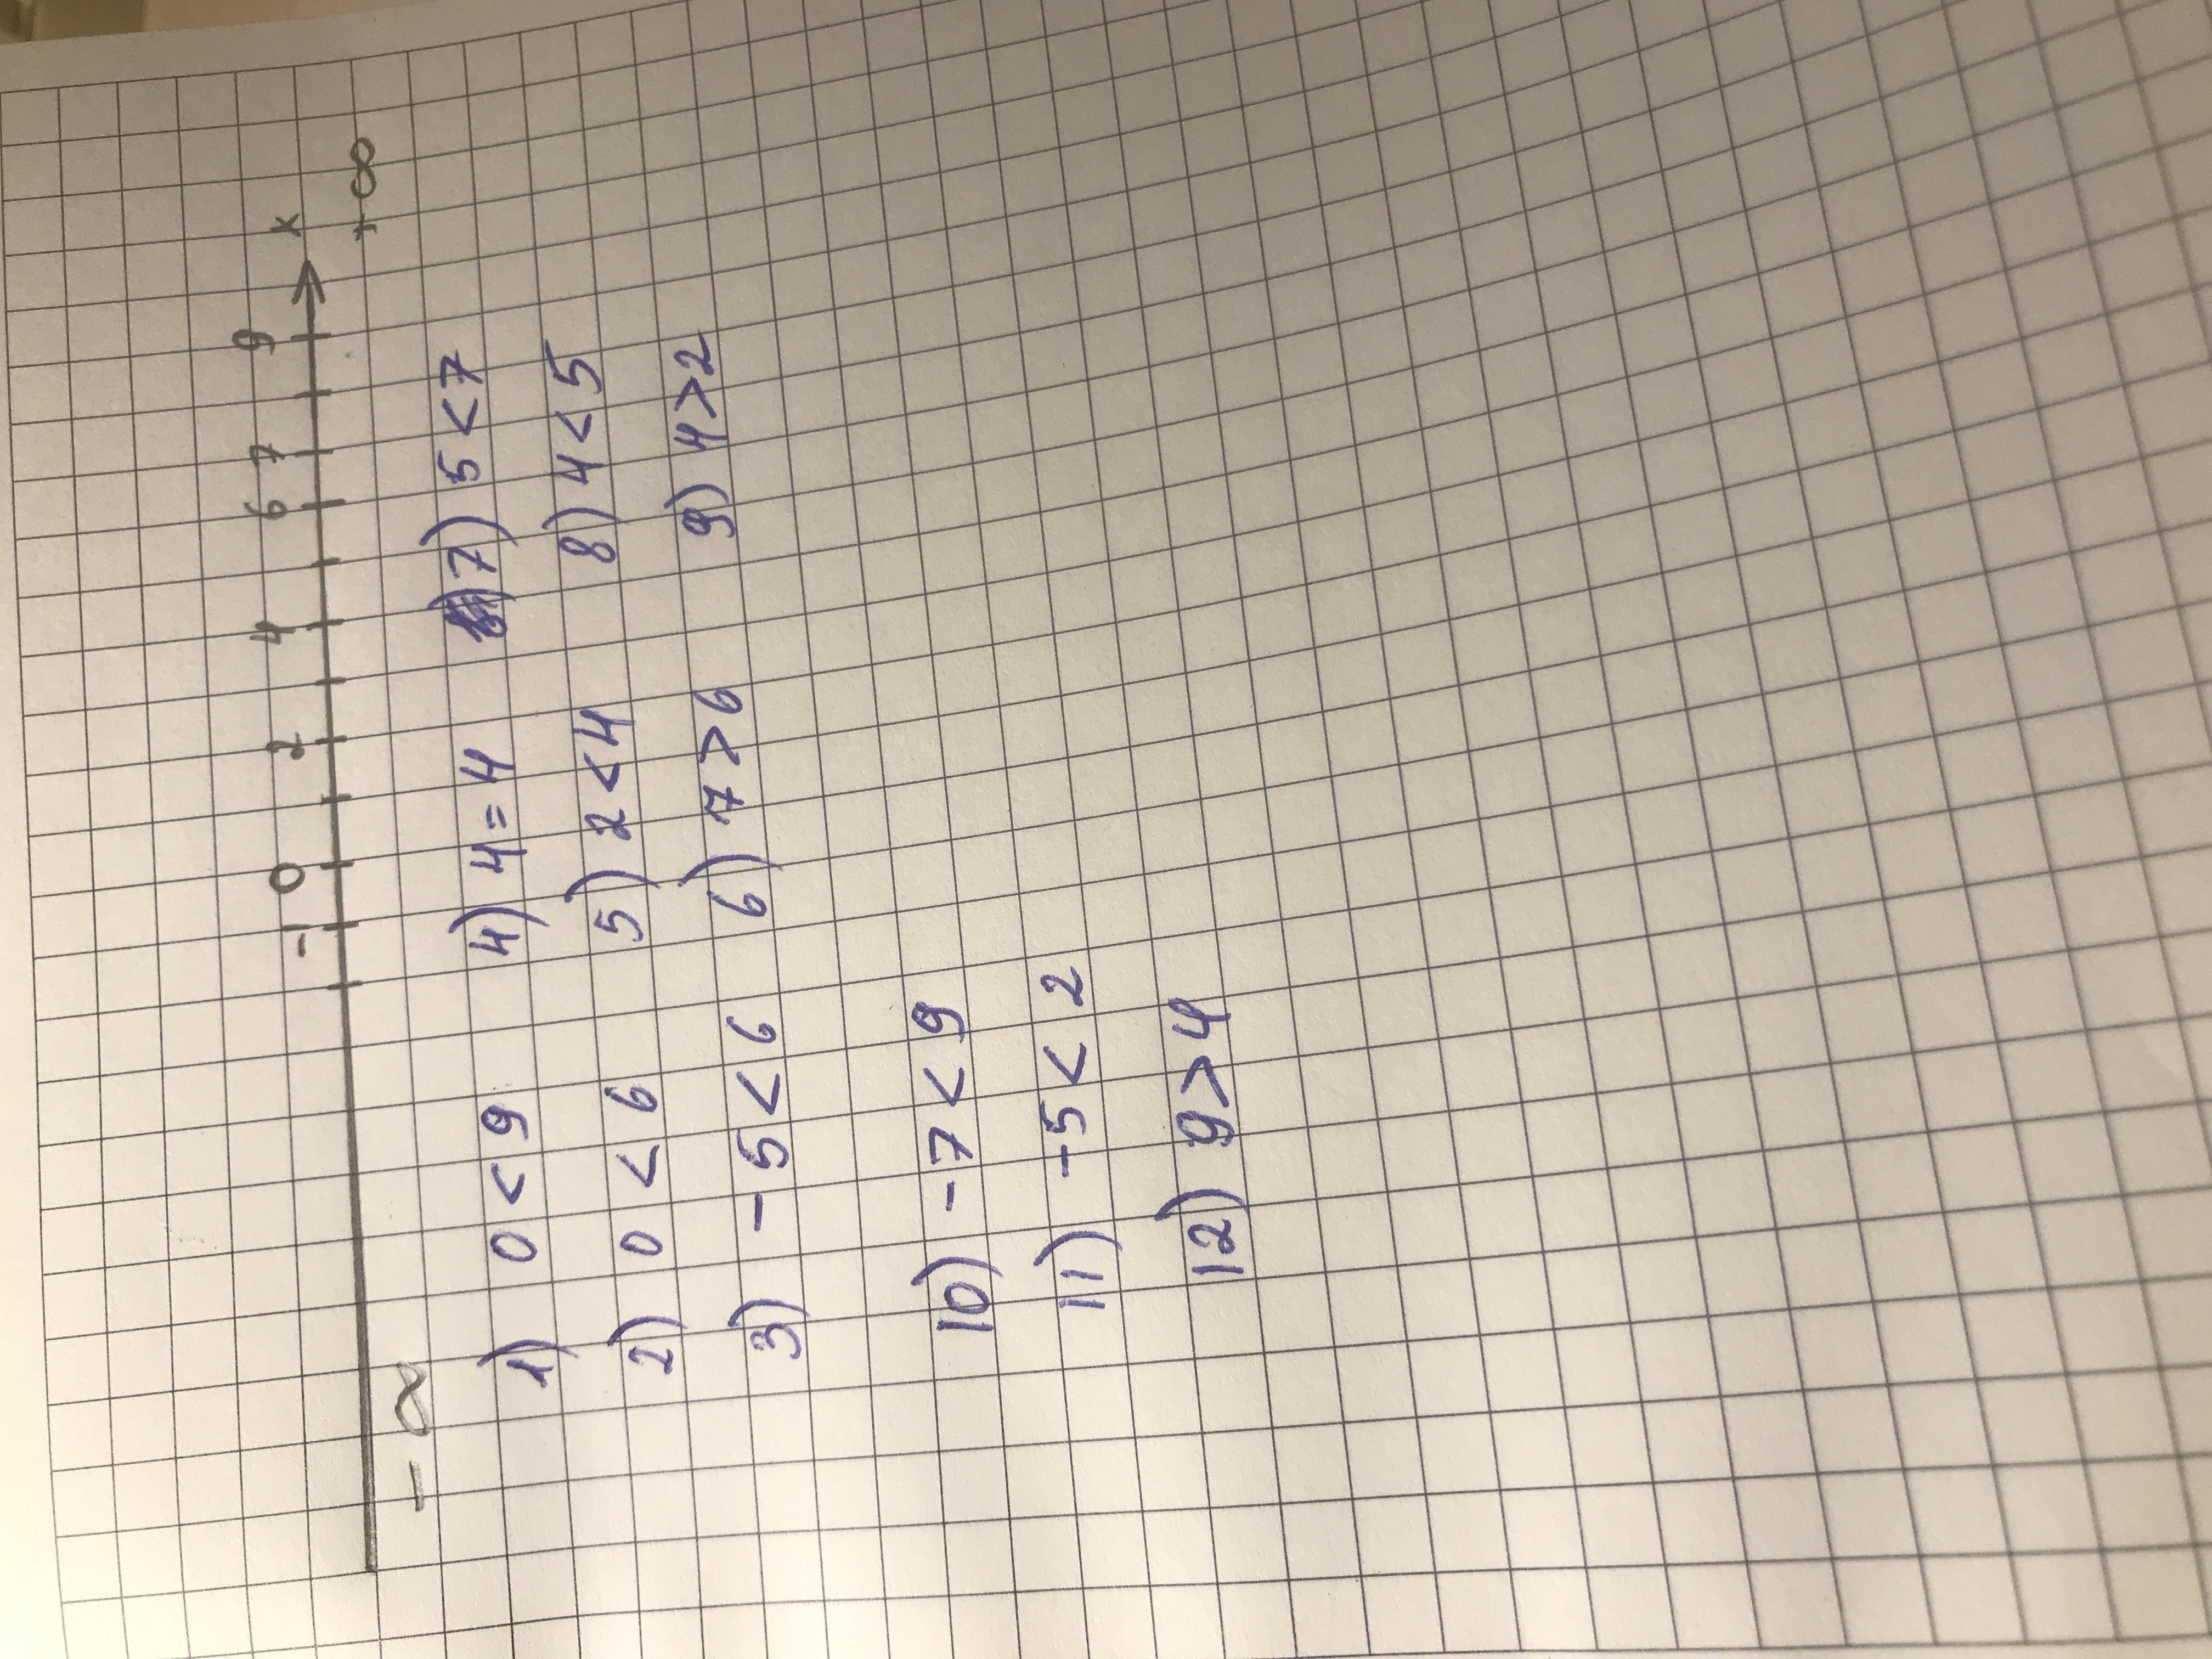 -1 0 2 4 6 7 9 x
-∞ +∞
1) 0 < 9
2) 0 < 6
3) -5 < 6
4) 4 = 4
5) 2 < 4
6) 7 > 6
7) 5 < 7
8) 4 < 5
9) 4 > 2
10) -7 < 9
11) -5 < 2
12) 9 > 4